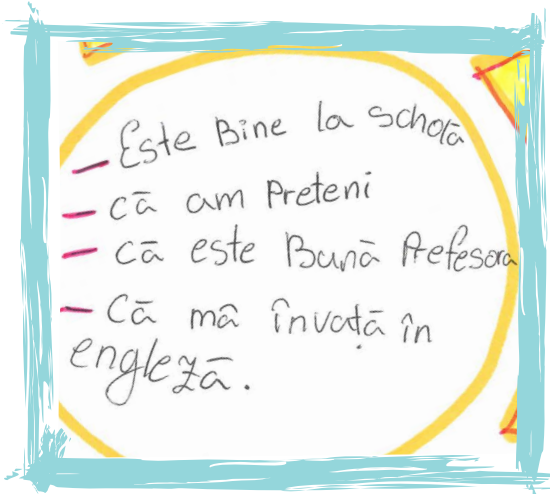 – Este Bine la schotă
– cā am Preteni
– cā este Bunā Prefesora
– Cā mâ învațā în
englezā.